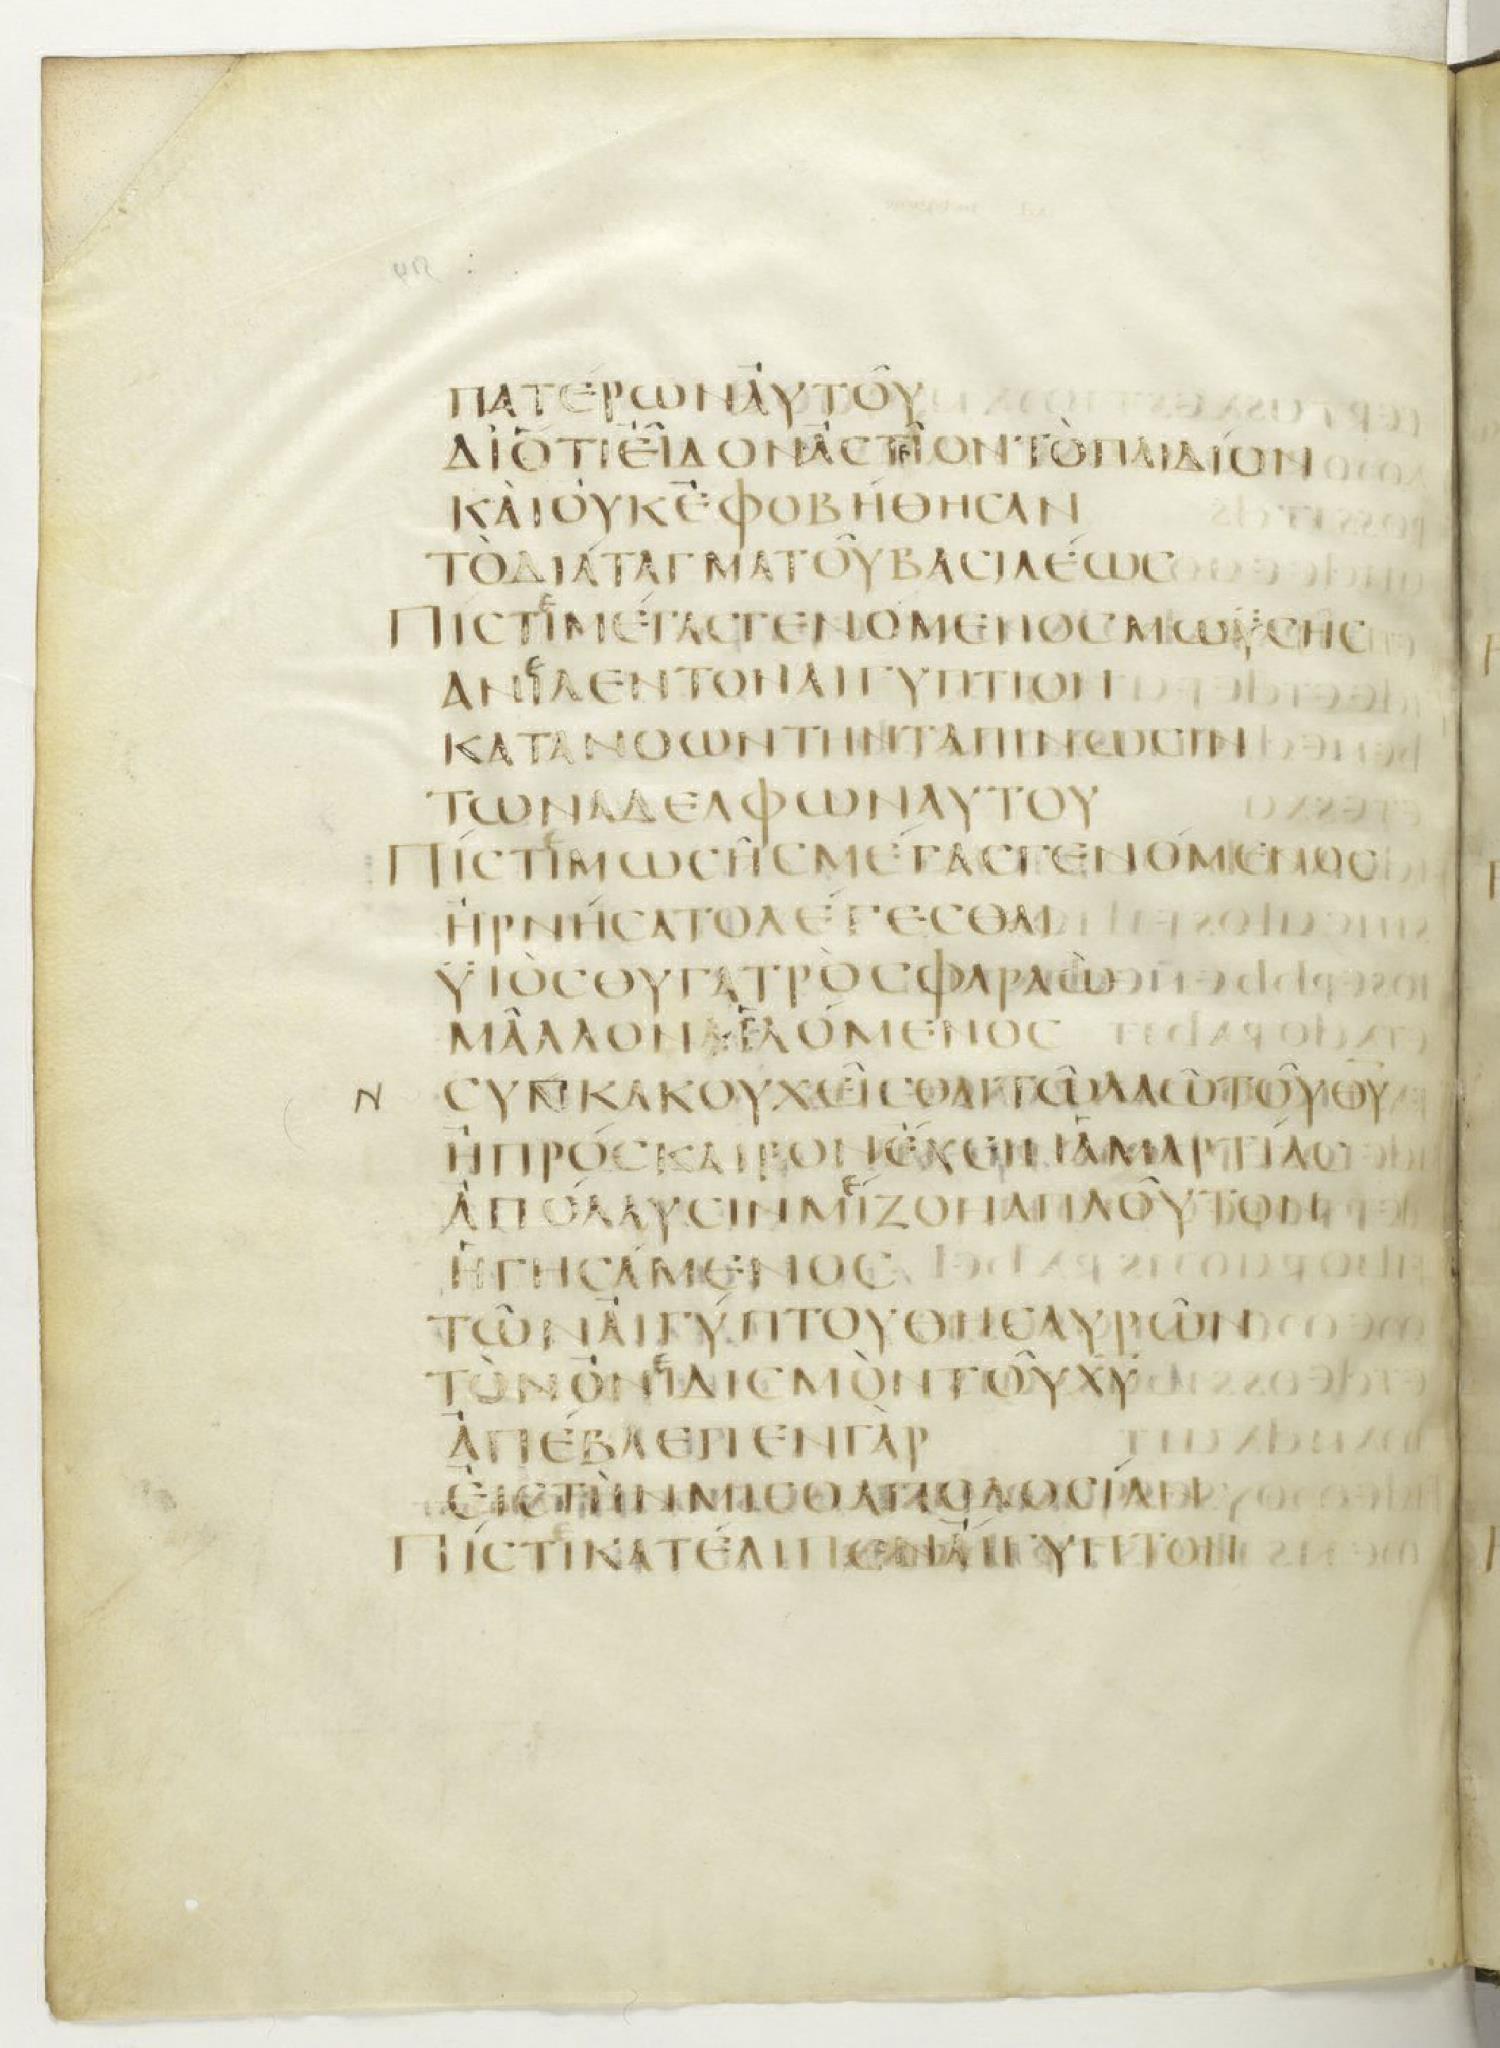 ΠΑΤΕΡΩΝΑΥΤΟΥ
ΔΙΟΤΙΕΙΔΟΝΑΣΤΙΟΝΤΟΠΑΙΔΙΟΝ
ΚΑΙΟΥΚΕΦΟΒΗΘΗΣΑΝ
ΤΟΔΙΑΤΑΓΜΑΤΟΥΒΑΣΙΛΕΩΣ
ΠΙΣΤΙΜΕΓΑΣΓΕΝΟΜΕΝΟΣΜΩΫΣΗΣ
ΑΝΙΛΕΝΤΟΝΑΙΓΥΠΤΙΟΝ
ΚΑΤΑΝΟΩΝΤΗΝΤΑΠΙΝΩΣΙΝ
ΤΩΝΑΔΕΛΦΩΝΑΥΤΟΥ
ΠΙΣΤΙΜΩΣΗΣΜΕΓΑΣΓΕΝΟΜΕΝΟΣ
ΗΡΝΗΣΑΤΟΛΕΓΕΣΘΑΙ
ΫΙΟΣΘΥΓΑΤΡΟΣΦΑΡΑΩ
ΜΑΛΛΟΝ
Ν ΣΥΝΚΑΚΟΥΧΕΙΣΘΑΙΤΩΛΑΩΤΟΥΘΥ
ΗΠΡΟΣΚΑΙΡΟΝΕΧΕΙΝΑΜΑΡΤΙΑΣ
ΑΠΟΛΑΥΣΙΝΜΙΖΟΝΑΠΛΟΥΤΟΝ
ΗΓΗΣΑΜΕΝΟΣ
ΤΩΝΑΙΓΥΠΤΟΥΘΗΣΑΥΡΩΝ
ΤΟΝΟΝΙΔΙΣΜΟΝΤΟΥΧΥ
ΑΠΕΒΛΕΠΕΝΓΑΡ
ΕΙΣΤΗΝΜΙΣΘΑΠΟΔΟΣΙΑΝ
ΠΙΣΤΙΚΑΤΕΛΙΠΕΝΑΙΓΥΠΤΟΝ